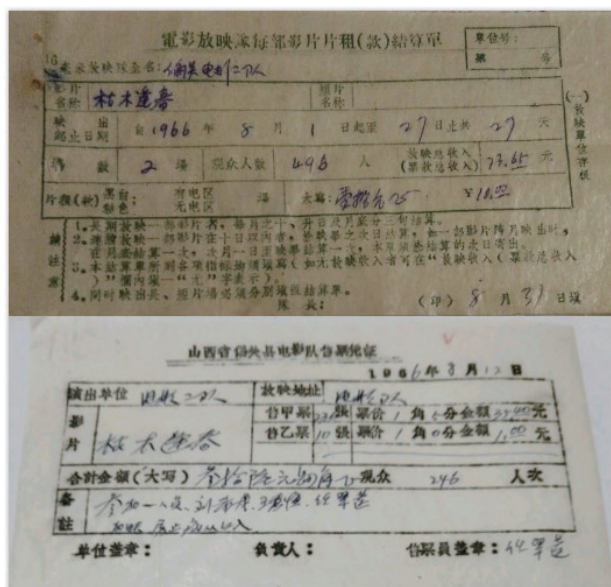 電影放映队每部影片片租(款)結算單
單位号:
第 号
放映队全名:偏关电影二队
影片名称 枯木逢春 短片名称
映出起止日期 自1966年8月1日起至27日止共27天
場数 2場 观众人数 496人 放映总收入(票款总收入) 73.65元
片租(款) 黑白: 彩色 有电区 无电区 場 大寫: ¥10.00
(一)放映單位存根
填註注意
1.長期放映一部影片者,每月之十、廿日及月底分三旬結算。
2.連續放映一部影片在十日以內者,給映畢之次日結算,如一部影片隔月映出时,
在月底結算一次,次月一日至映畢結算一次,本單須悉結算的次日寄出。
3.本結算單所列各項指标均須填寫(如无放映收入者可在“放映收入(票款总收入
)”欄內填一“无”字表示)。
4.同时映出長、短片場必須分別填報結算單。
隊長: (印) 8月31日填
山西省偏关县电影队售票凭证
1966年8月12日
演出单位 电影二队 放映地址 电影二队
影片 枯木逢春
售甲票236張 票价1角5分金額35.40元
售乙票10張 票价1角0分金額1.00元
合計金額(大写) 叁拾陆元四角 观众 246 人次
备註
单位盖章: 负責人: 售票員盖章:任翠莲